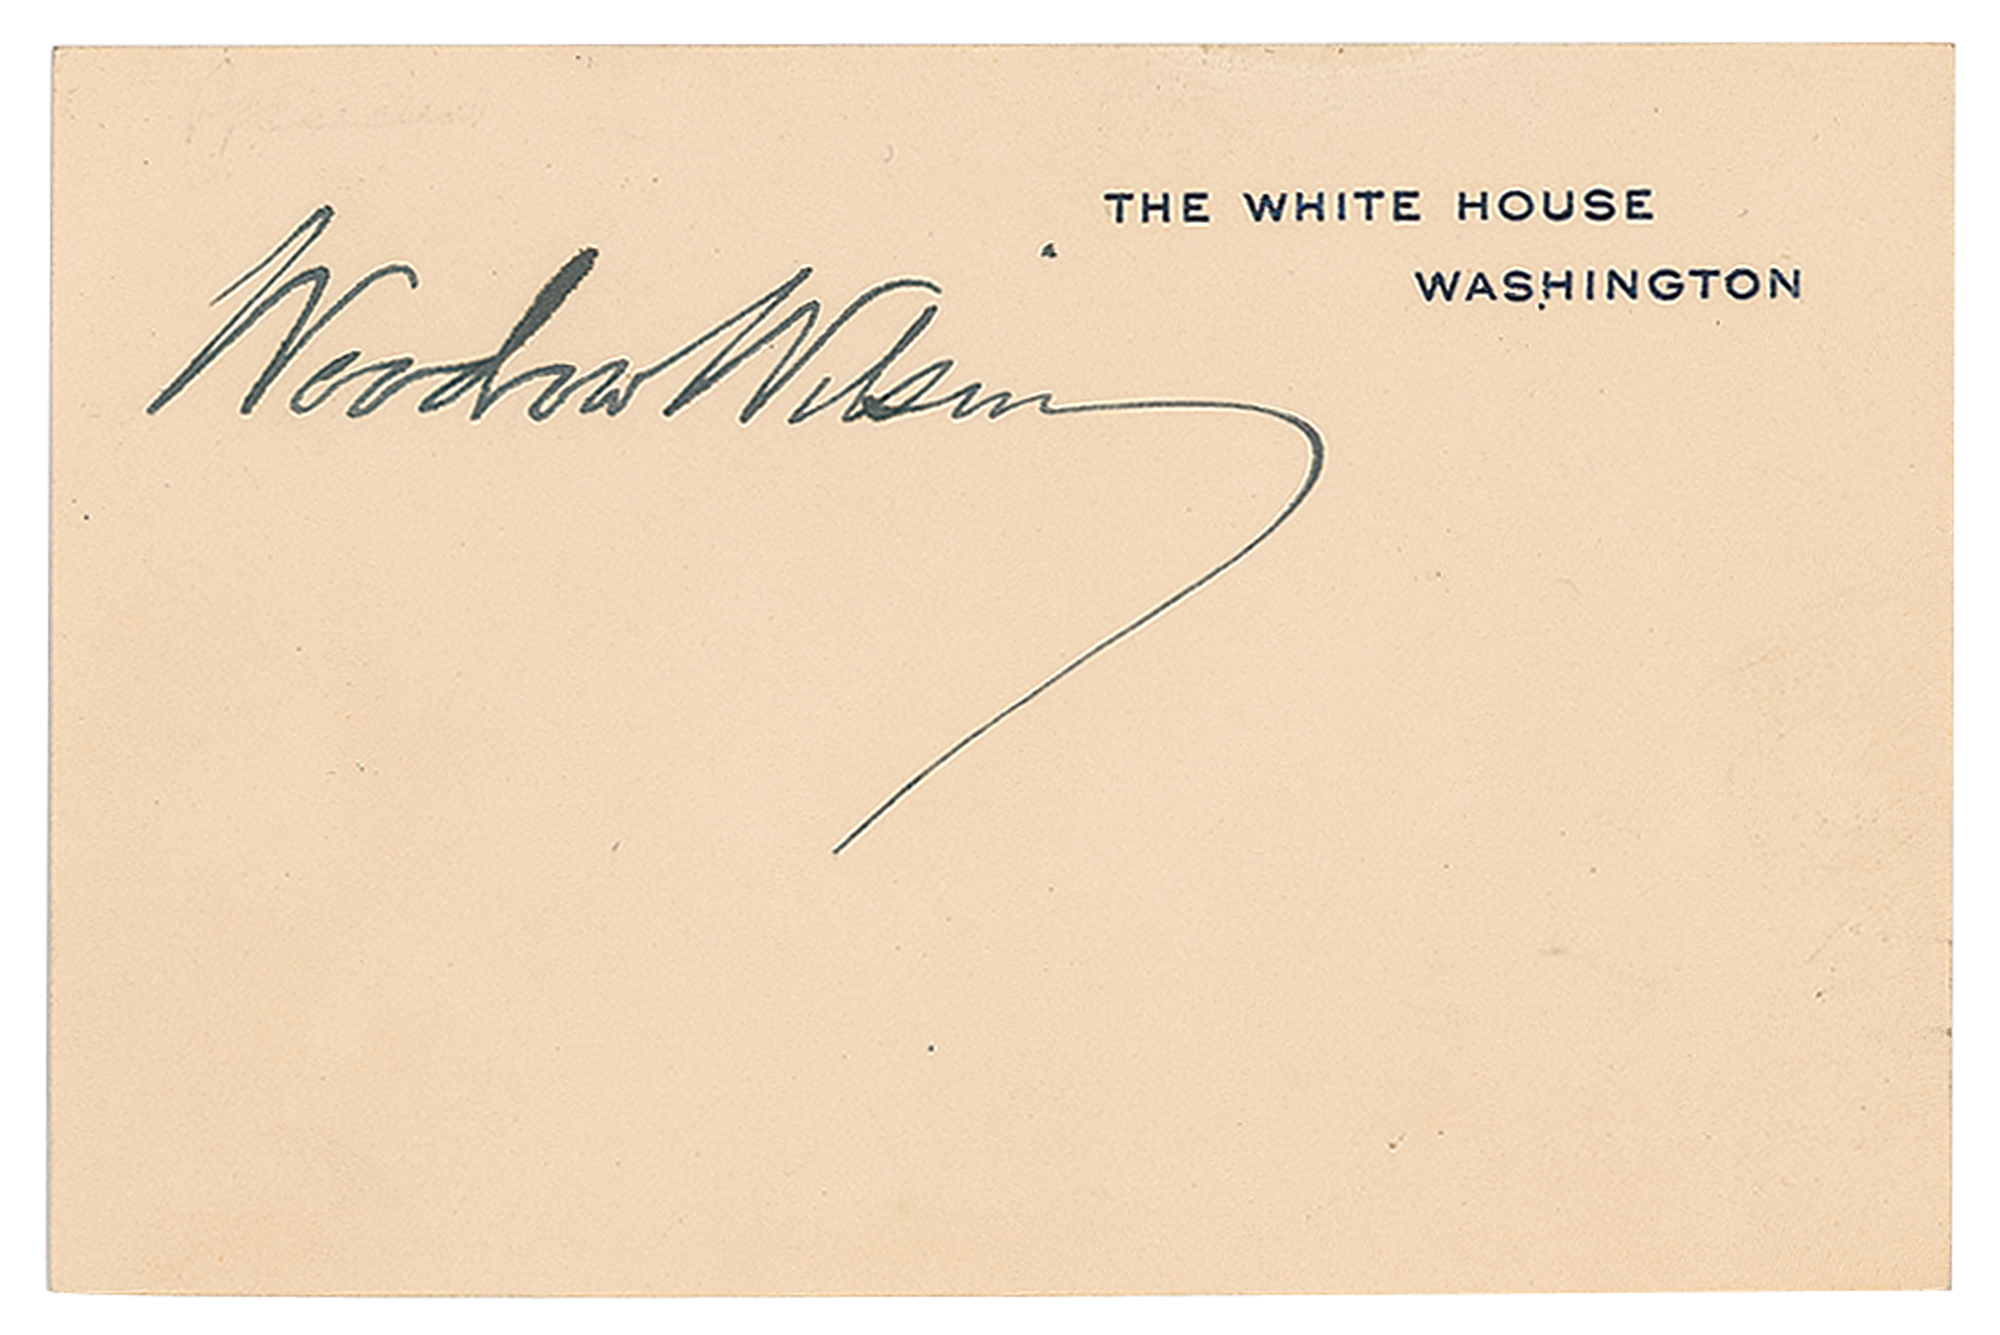 THE WHITE HOUSE
WASHINGTON
Woodrow Wilson